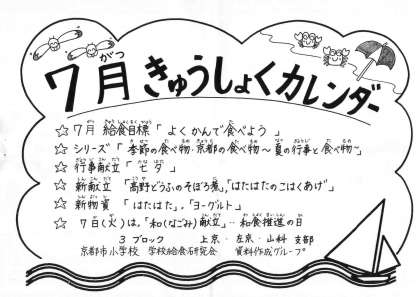 7月きゅうしょくカレンダー
☆ 7月 給食目標「よくかんで食べよう」
☆ シリーズ「季節の食べ物・京都の食べ物～夏の行事と食べ物～」
☆ 行事献立「七夕」
☆ 新献立「高野どうふのそぼろ煮」,「はたはたのこはくあげ」
☆ 新物資「はたはた」,「ヨーグルト」
☆ 7日(火)は,「和(なごみ)献立」…和食推進の日
3ブロック 上京・左京・山科 支部
京都市小学校 学校給食研究会 資料作成グループ